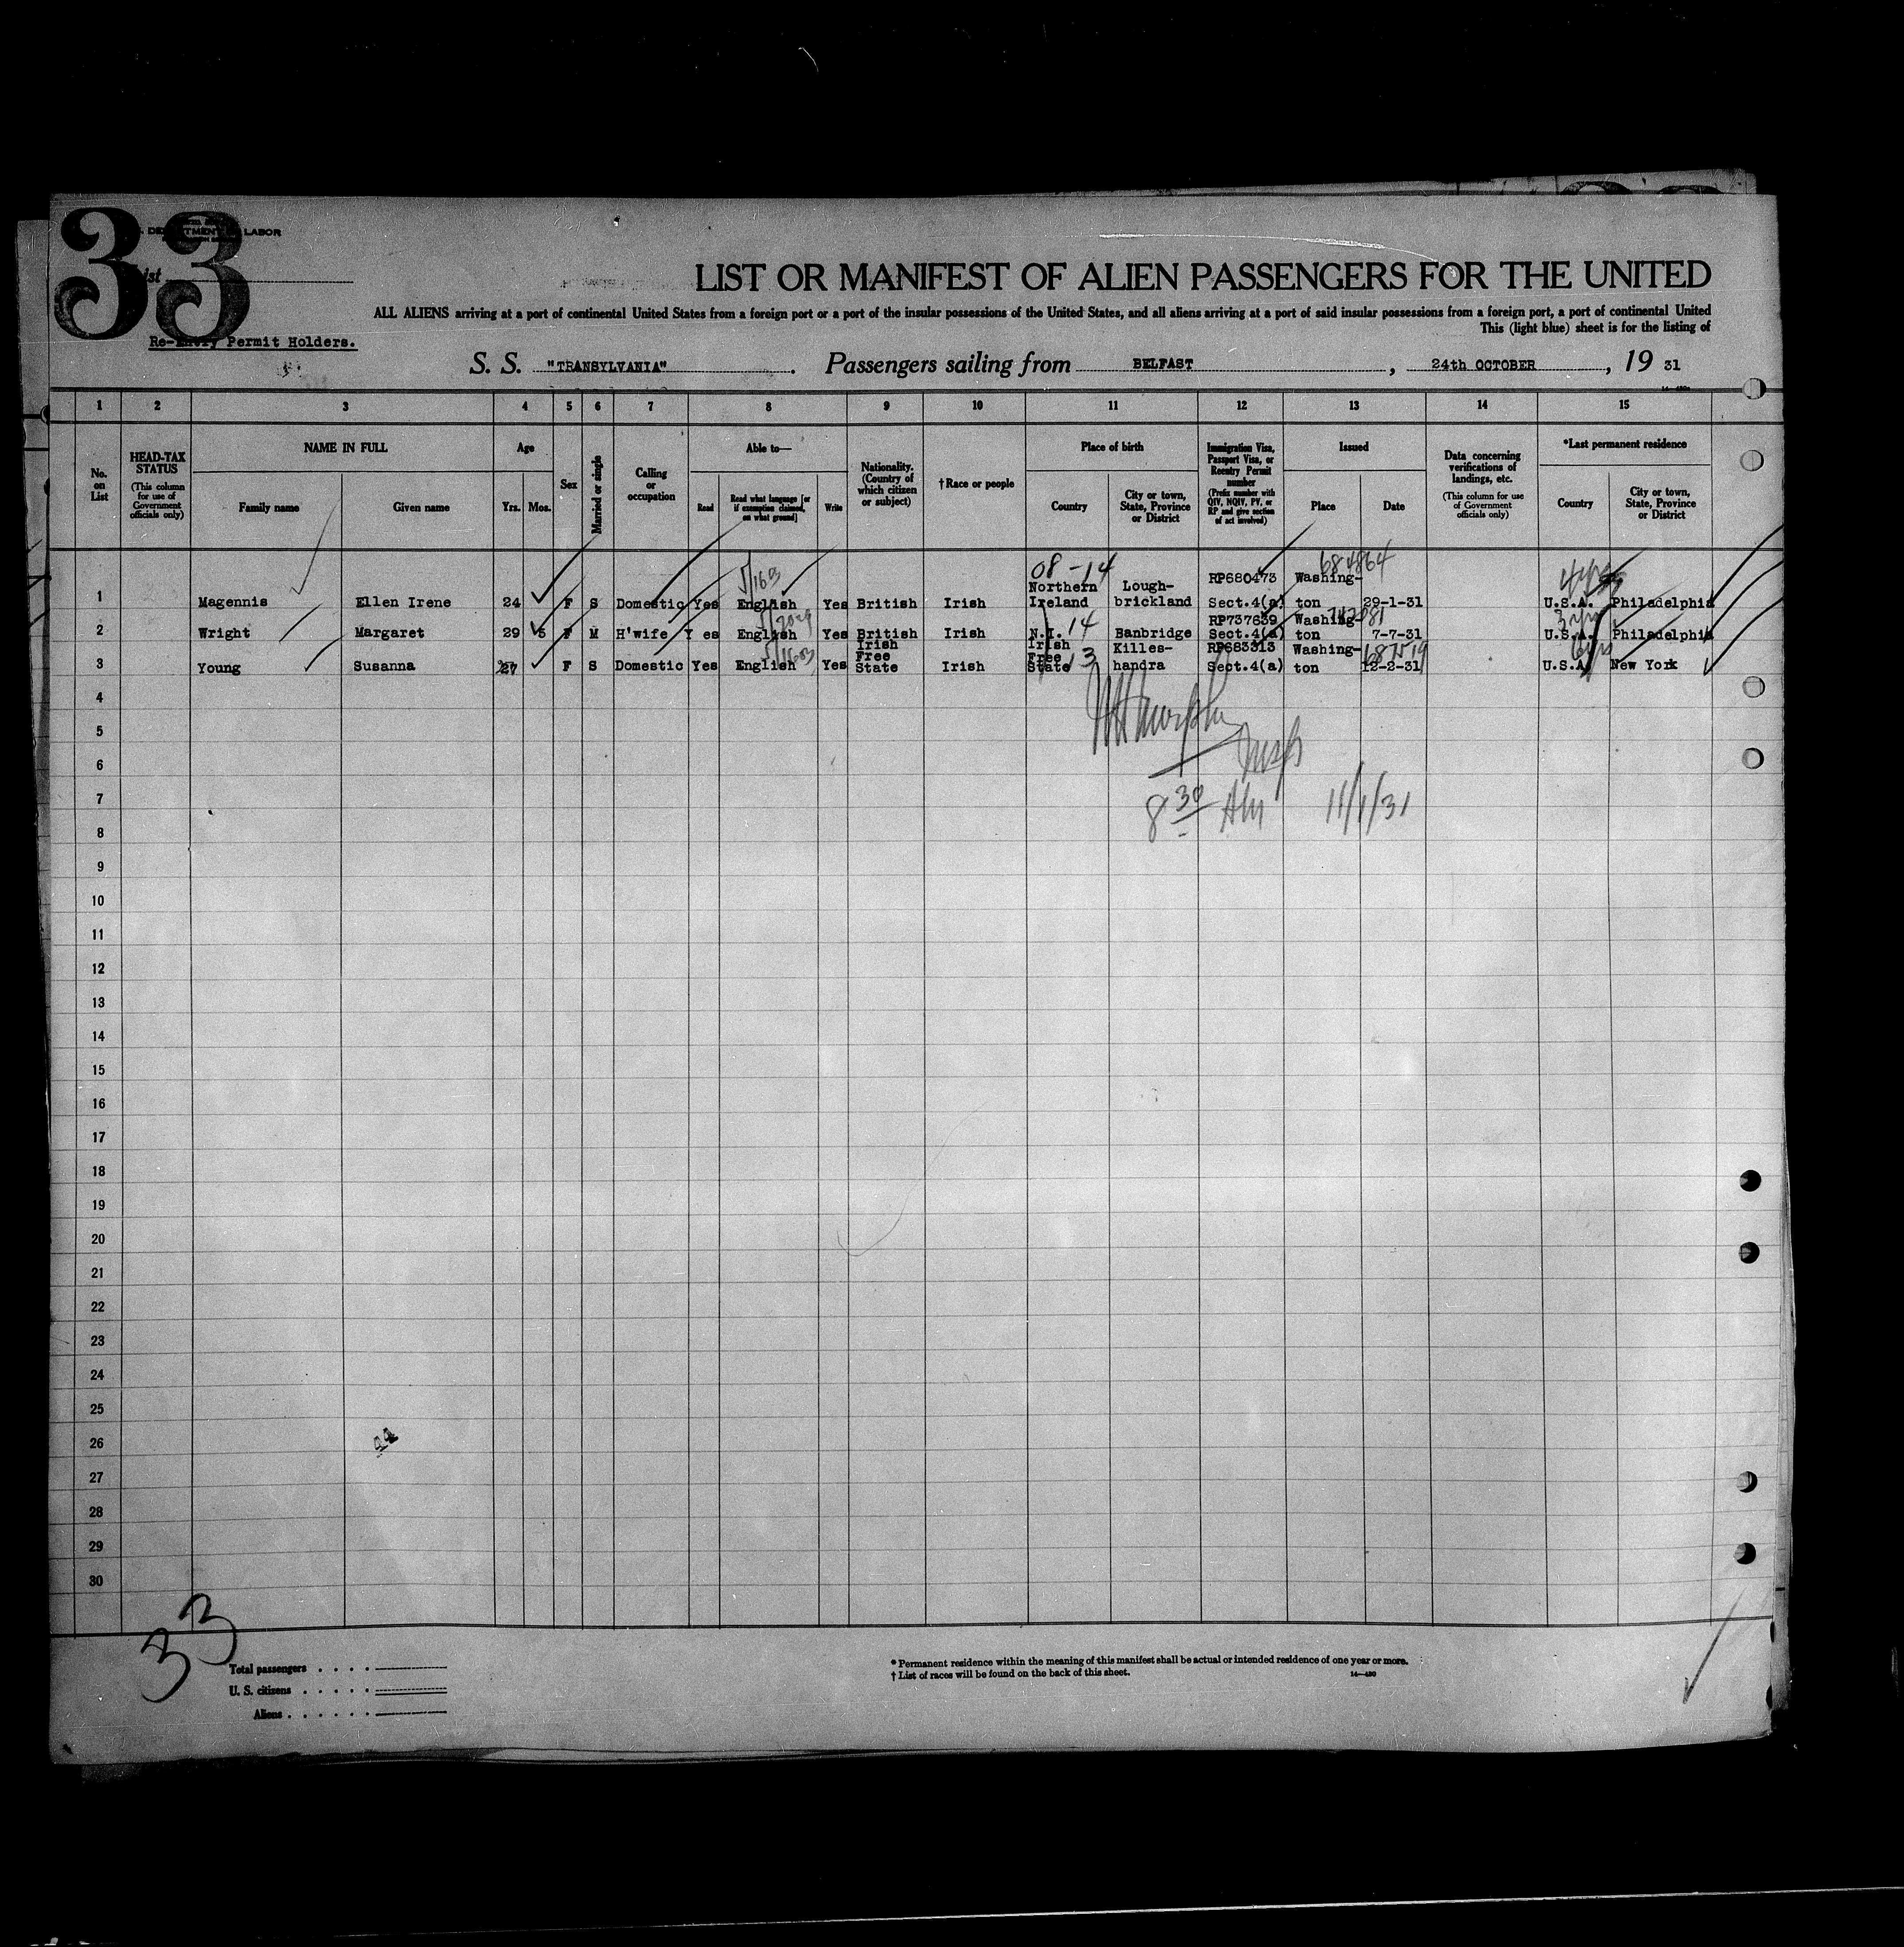 33
LABOR
Re-Entry Permit Holders.
LIST OR MANIFEST OF ALIEN PASSENGERS FOR THE UNITED
ALL ALIENS arriving at a port of continental United States from a foreign port or a port of the insular possessions of the United States, and all aliens arriving at a port of said insular possessions from a foreign port, a port of continental United
This (light blue) sheet is for the listing of
S. S. "TRANSYLVANIA". Passengers sailing from BELFAST, 24th OCTOBER, 19 31
1 2 3 4 5 6 7 8 9 10 11 12 13 14 15
No. on List
HEAD-TAX STATUS
(This column for use of Government officials only)
NAME IN FULL
Family name Given name
Age
Yrs. Mos.
Sex
Married or single
Calling or occupation
Able to—
Read Read what language [or if exemption claimed, on what ground] Write
Nationality. (Country of which citizen or subject)
†Race or people
Place of birth
Country City or town, State, Province or District
Immigration Visa, Passport Visa, or Reentry Permit number
(Prefix number with QIV, NQIV, PV, or RP and give section of act involved)
Issued
Place Date
Data concerning verifications of landings, etc.
(This column for use of Government officials only)
*Last permanent residence
Country City or town, State, Province or District
08-14 684864
Northern Lough- RP680473 Washing-
1 Magennis Ellen Irene 24 F S Domestic Yes English Yes British Irish Ireland brickland Sect.4(a) ton 29-1-31 U.S.A. Philadelphia
14 RP737639 Washing-
2 Wright Margaret 29 5 F M H'wife Y es English Yes British Irish N.I. Banbridge Sect.4(a) ton 7-7-31 U.S.A. Philadelphia
Irish Free Irish Free 13 Killes- RP683313 Washing-
3 Young Susanna 27 F S Domestic Yes English Yes State Irish State handra Sect.4(a) ton 12-2-31 U.S.A. New York
4
5
6
7
8 30 AM 11/1/31
8
9
10
11
12
13
14
15
16
17
18
19
20
21
22
23
24
25
26
27
28
29
30
33
Total passengers . . . .
U. S. citizens . . . . .
Aliens . . . . . .
* Permanent residence within the meaning of this manifest shall be actual or intended residence of one year or more.
† List of races will be found on the back of this sheet. 14—490